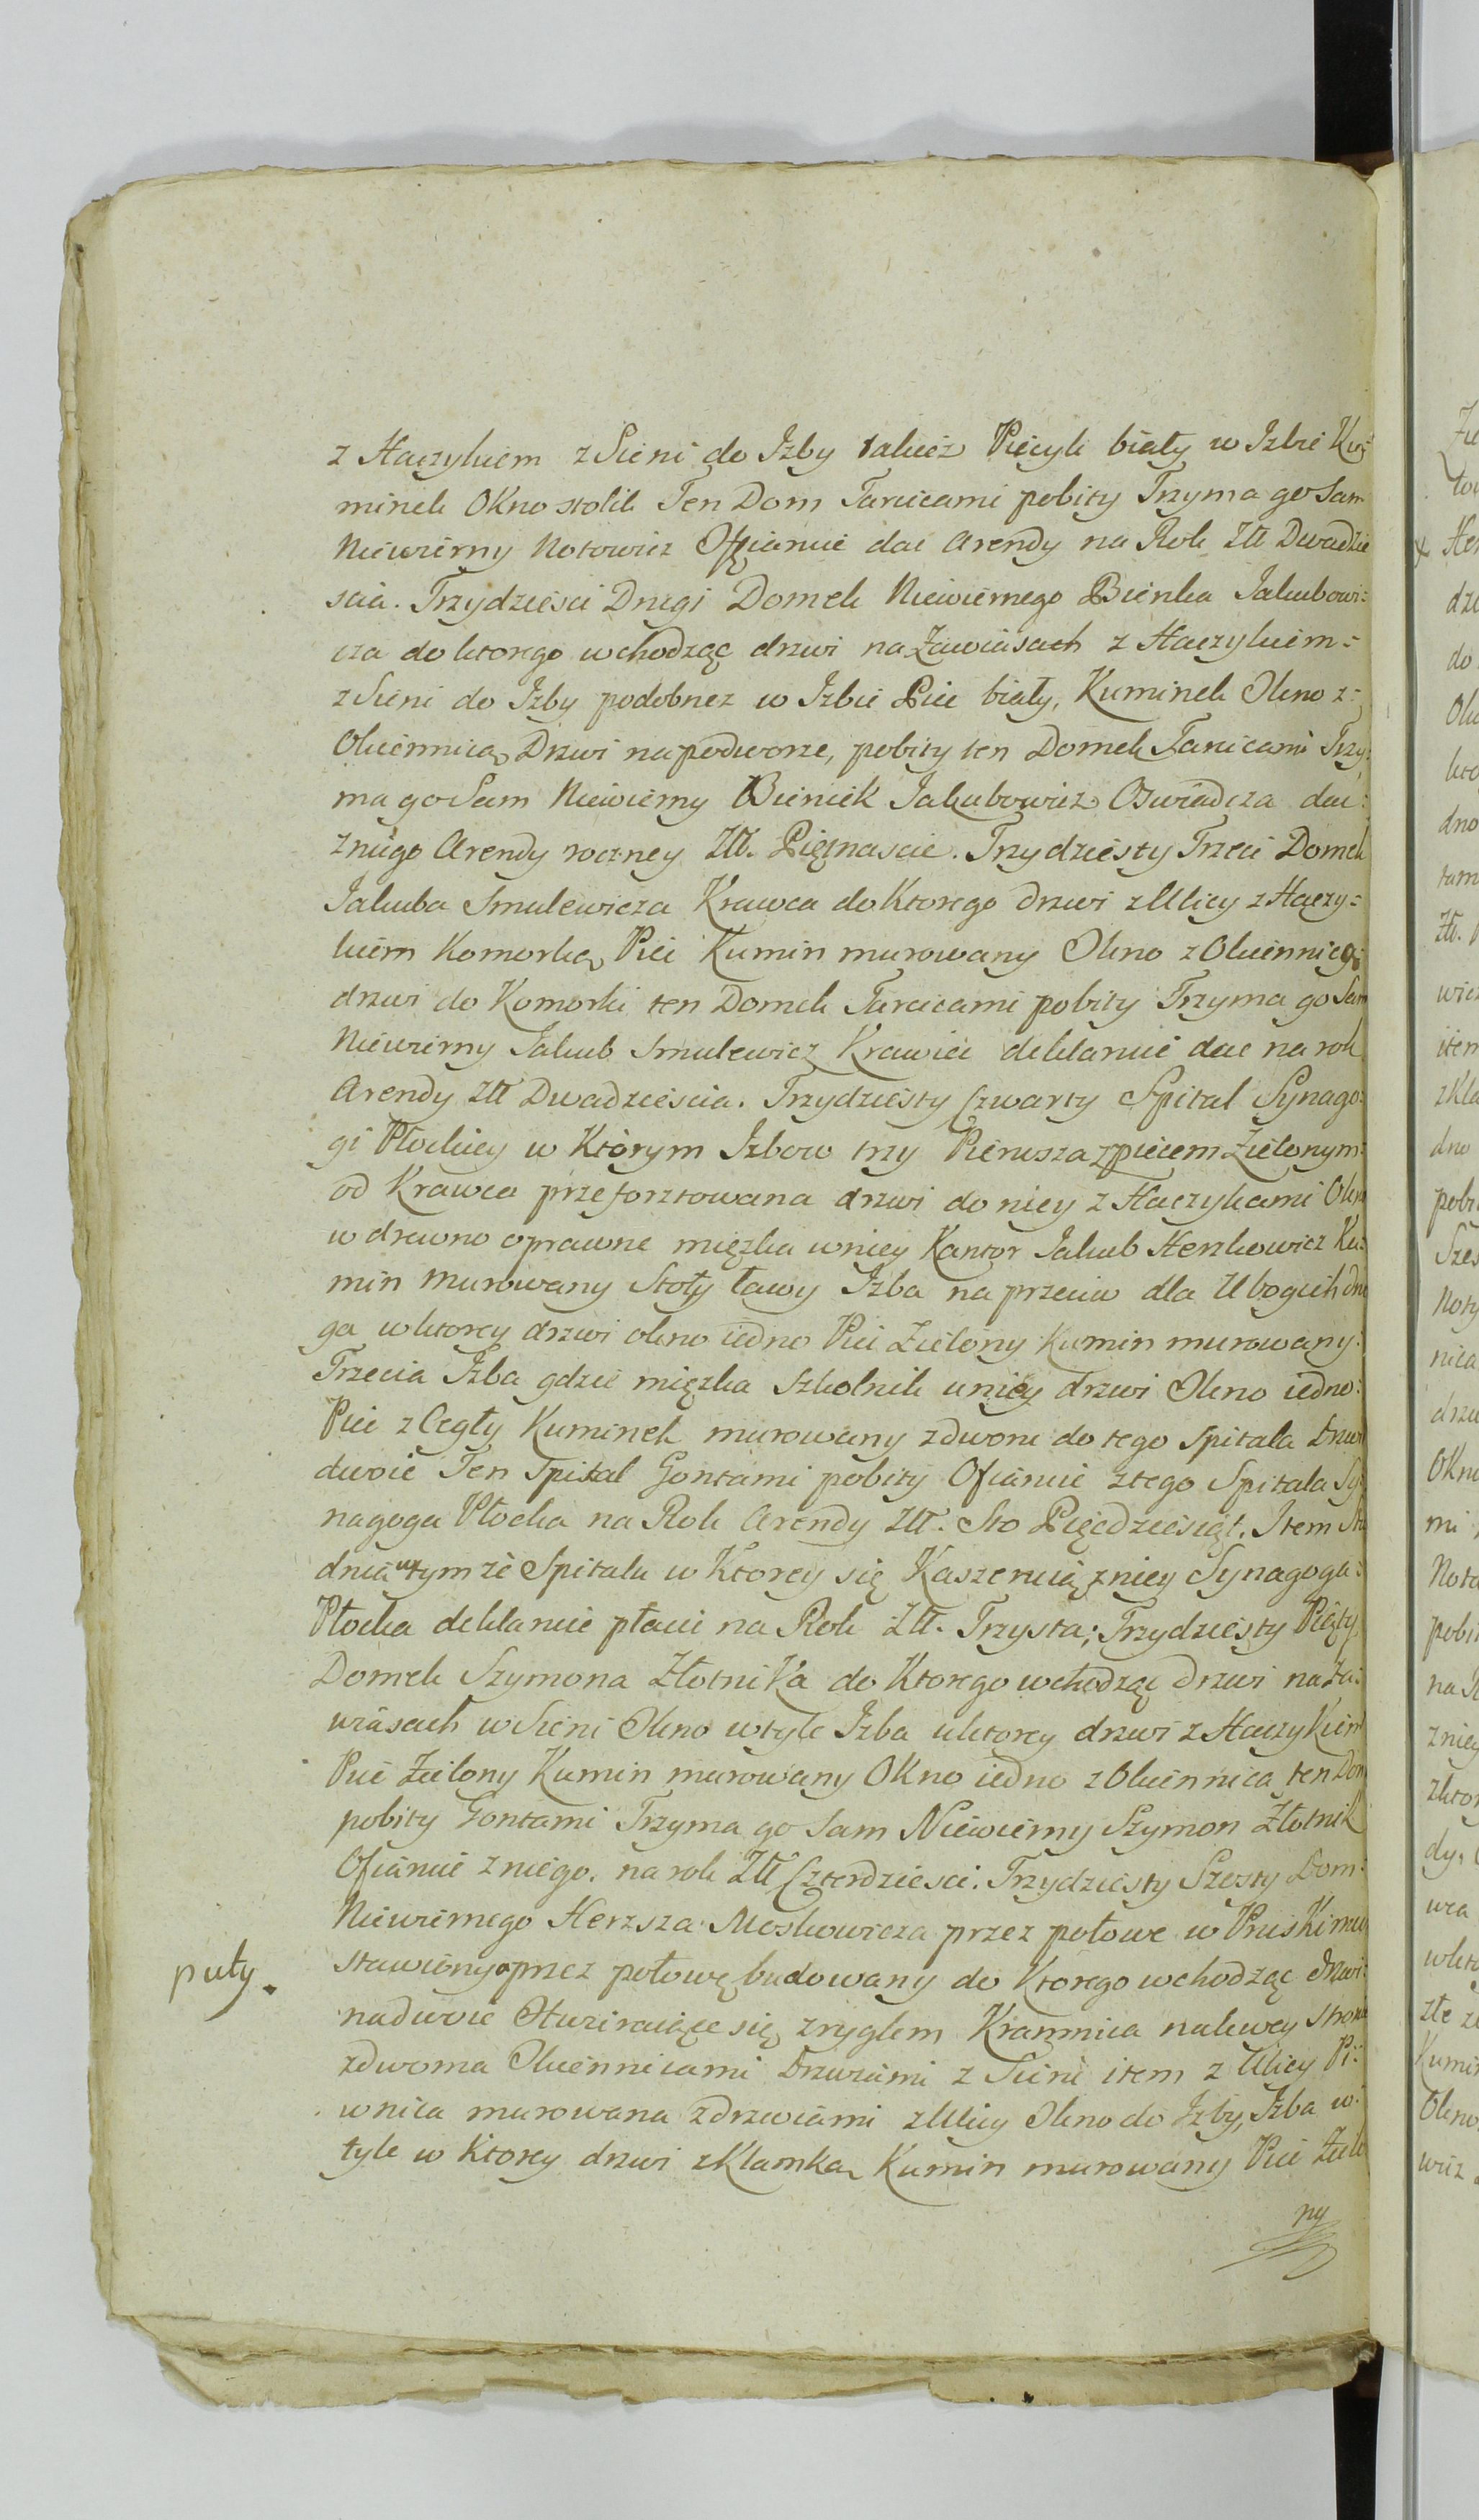 z Haczykiem z Sieni do Izby takież Piécyk biały w Izbie Ku=
minek Okno stolik Ten Dom Tarcicami pobity Trzyma go Sam
Niewierny Notowicz Ofiaruie dać Arendy na Rok Złł Dwadzie
scia. Trzydziesci Drugi Domek Niewiernego Bienka Jakubowi=
cza do ktorego wchodząc drzwi na Zawiasach z Haczykiem=
z Sieni do Izby podobnez w Izbie Piec biały, Kuminek Okno z=
Okiennicą Drzwi na podworze, pobity ten Domek Tarcicami Trzy=
ma go Sam Niewierny Bieniek Jakubowicz Oswiadcza dac:
z niego Arendy roczney Złł. Piętnascie. Trzydziesty Trzeci Domek
Jakuba Smulewicza Krawca do Ktorego drzwi z Ulicy z Haczy=
kiem Komorka Piec Kumin murowany Okno z Okiennicą:
drzwi do Komorki ten Domek Tarcicami pobity Trzyma go Sam
Niewierny Jakub Smulewicz Krawiec deklaruie dac na rok
Arendy Złł Dwadziescia. Trzydziesty Czwarty Spital Synago=
gi Płockiey w Którym Izbow trzy Pierwsza z piecem Zielonym:
od Krawca przeforztowana drzwi do niey z Haczykami Okna
w drewno oprawne mięzka w niey Kantor Jakub Herszkowicz Ku=
min murowany Stoły ławy Izba na przeciw dla Ubogich dru
ga w ktorey drzwi okno iedno Piec Zielony Kumin murowany:
Trzecia Izba gdzie mięzka Szkolnik w niey drzwi Okno iedno:
Piec z Cegły Kuminek murowany z dworu do tego Spitala Drzwi
dwoie Ten Spital Gontami pobity Ofiaruie z tego Spitala Sy=
nagoga Płocka na Rok Arendy Złł. Sto Pięcdziesiąt. Item Stu
dnia w tymże Spitalu w Ktorey się Kaszeruią z niey Synagoga:
Płocka deklaruie płacic na Rok Złł. Trzysta; Trzydziesty Piąty
Domek Szymona Złotnika do Ktorego wchodząc drzwi na Za=
wiasach w Sieni Okno w tyle Izba w ktorey drzwi z Haczykiem
Piec Zielony Kumin murowany Okno iedno z Okiennicą ten Dom
pobity Gontami Trzyma go Sam Niewierny Szymon Złotnik
Ofiaruie z niego. na rok Złł Czterdziesci. Trzydziesty Szosty Dom:
Niewiernego Herszsza Moskowicza przez połowe w Pruski mur
puły. stawiony a przez połowę budowany do Ktorego wchodząc drzwi:
na dwoie Otwieraiące się z ryglem Kramnica na lewey stronie
z dwoma Okiennicami Drzwiami z Sieni item z Ulicy Pi=
wnica murowana z drzwiami z Ulicy Okno do Izby, Izba w
tyle w Ktorey drzwi z Klamką Kumin murowany Piec Zielo
ny